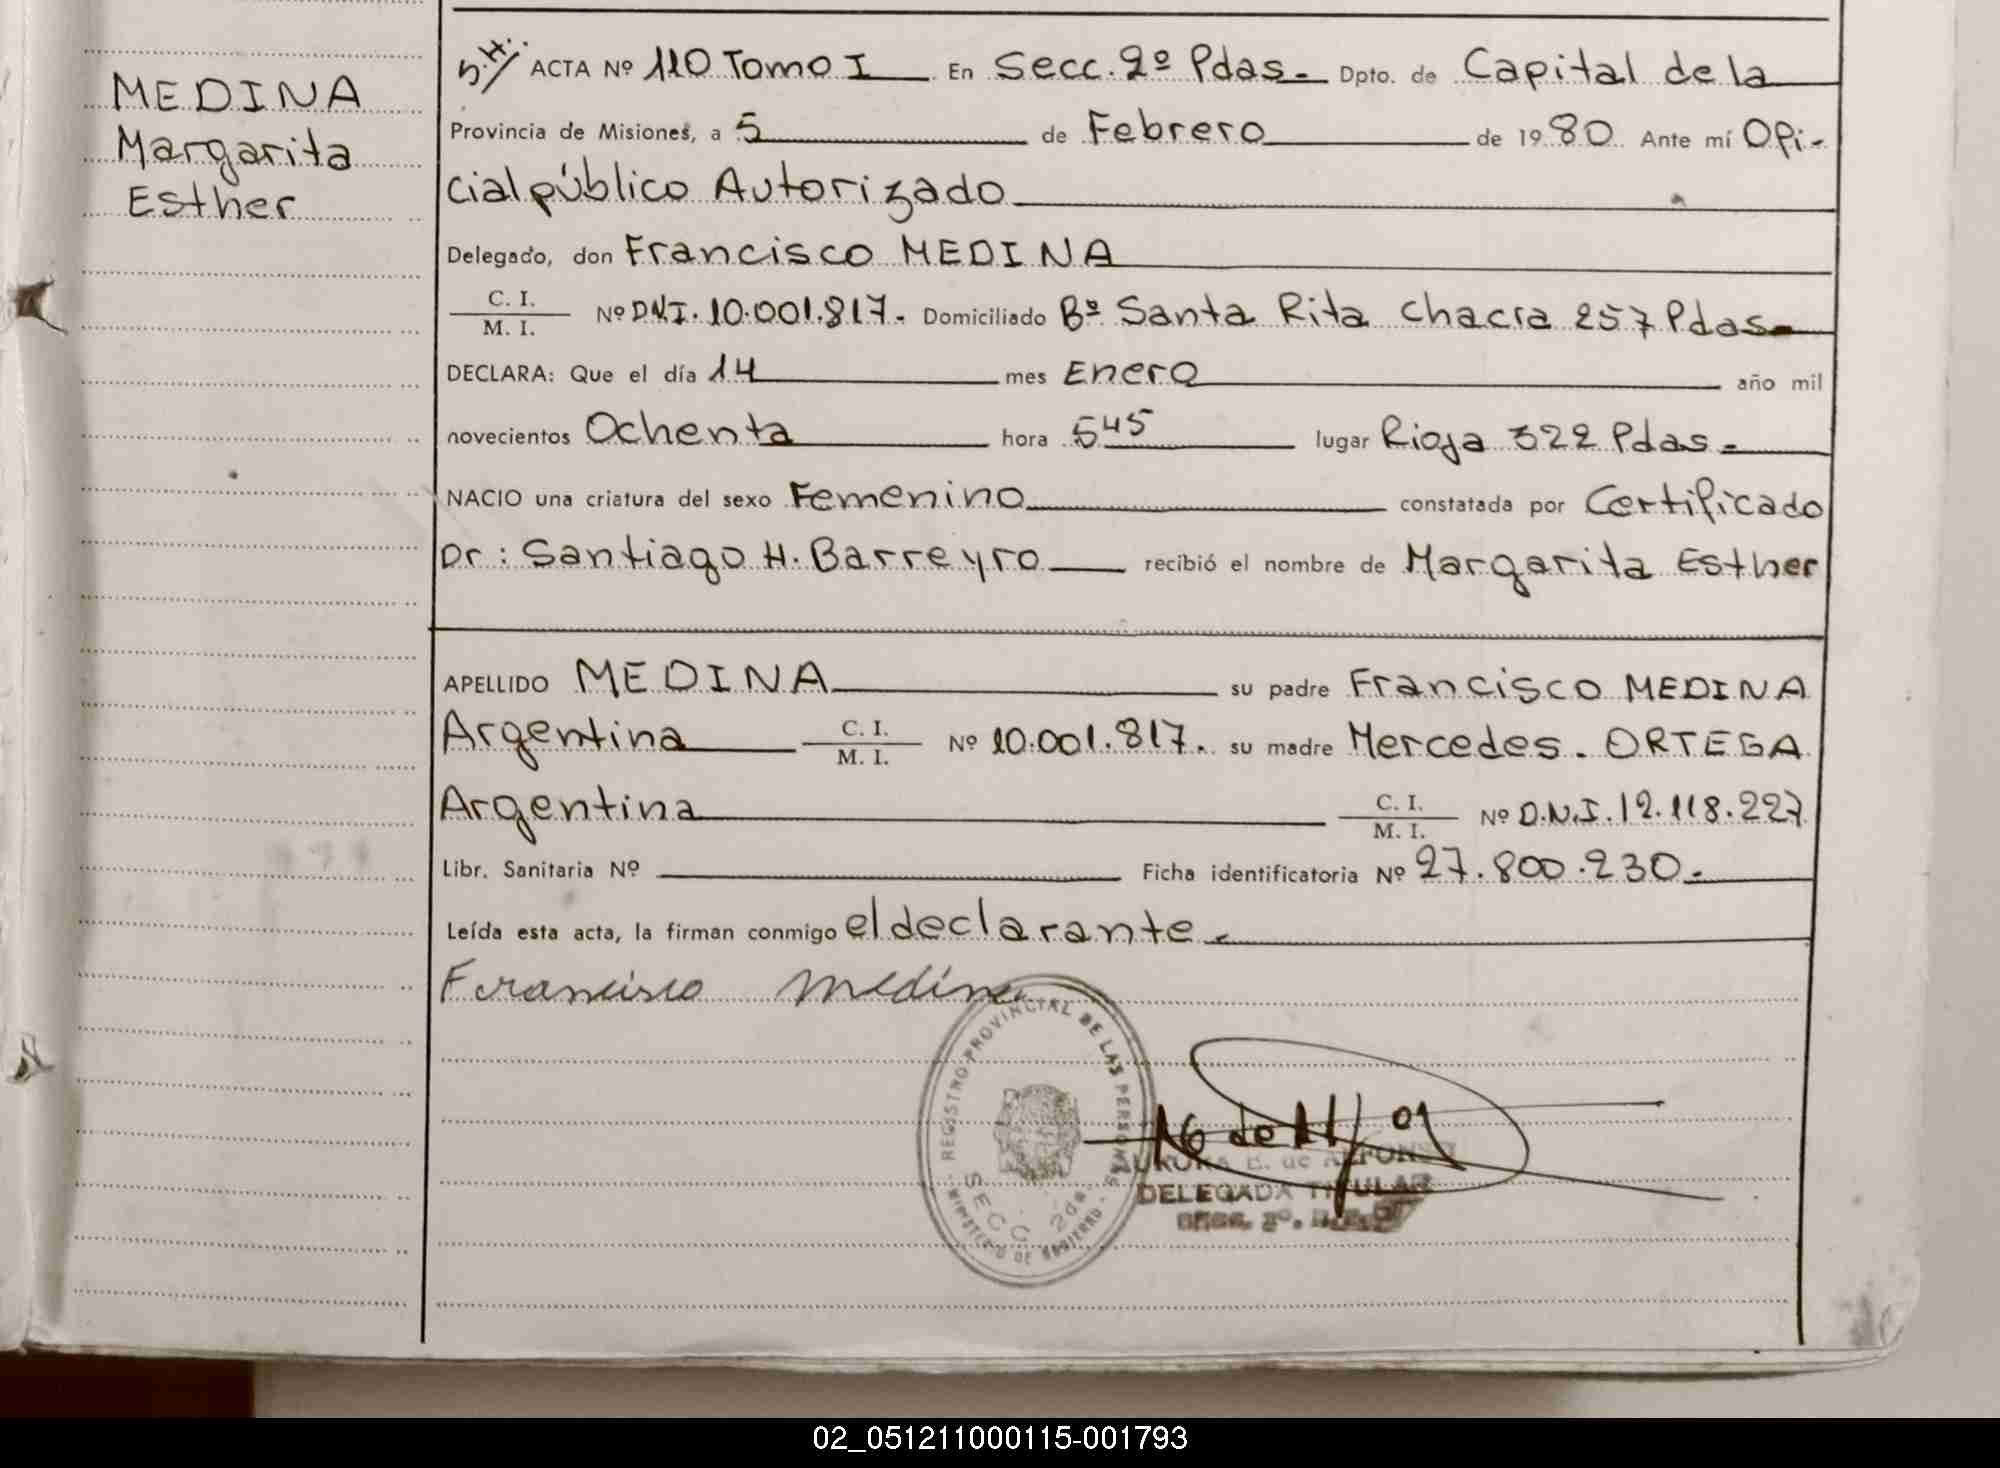 MEDINA
Margarita
Esther
S.H. ACTA Nº 110 Tomo I En Secc. 2º Pdas. Dpto. de Capital de la
Provincia de Misiones, a 5 de Febrero de 1980 Ante mí Ofi-
cial público Autorizado
Delegado, don Francisco MEDINA
C. I.
M. I.
Nº D.N.I. 10.001.817. Domiciliado Bº Santa Rita chacra 257 Pdas.
DECLARA: Que el día 14 mes Enero año mil
novecientos Ochenta hora 5 45 lugar Rioja 322 Pdas.
NACIO una criatura del sexo Femenino constatada por Certificado
Dr: Santiago H. Barreyro recibió el nombre de Margarita Esther
APELLIDO MEDINA su padre Francisco MEDINA
Argentina C. I. M. I. Nº 10.001.817. su madre Mercedes. ORTEGA
Argentina C. I. M. I. Nº D.N.I. 12.118.227
Libr. Sanitaria Nº Ficha identificatoria Nº 27.800.230.
Leída esta acta, la firman conmigo el declarante.
Francisco Medina
REGISTRO PROVINCIAL DE LAS PERSONAS
MINISTERIO DE GOBIERNO
SECC 2da.
AURORA E. de ALFONSO
DELEGADA TITULAR
02_051211000115-001793